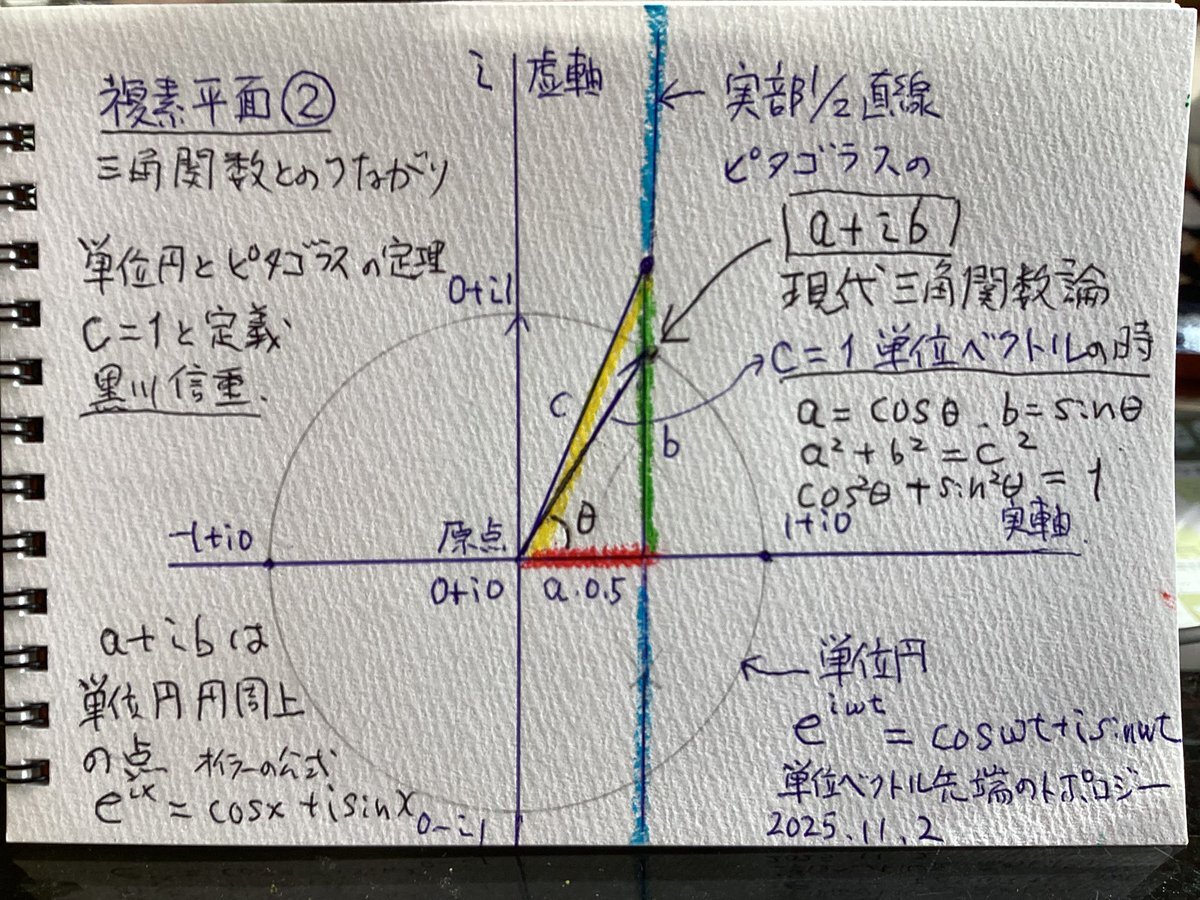 複素平面②
三角関数とのつながり
単位円とピタゴラスの定理
C=1と定義
黒川信重.
i 虚軸
実部1/2直線
ピタゴラスの
a+ib
現代三角関数論
C=1単位ベクトルの時
a=cosθ.b=sinθ
a²+b²=c²
cos²θ+sin²θ=1
0+i1
c
b
θ
-1+i0
原点
0+i0
a.0.5
1+i0
実軸
a+ibは
単位円円周上
の点 オイラーの公式
e^ix=cosx+isinx
0-i1
単位円
e^iwt=coswt+isinwt
単位ベクトル先端のトポロジー
2025.11.2